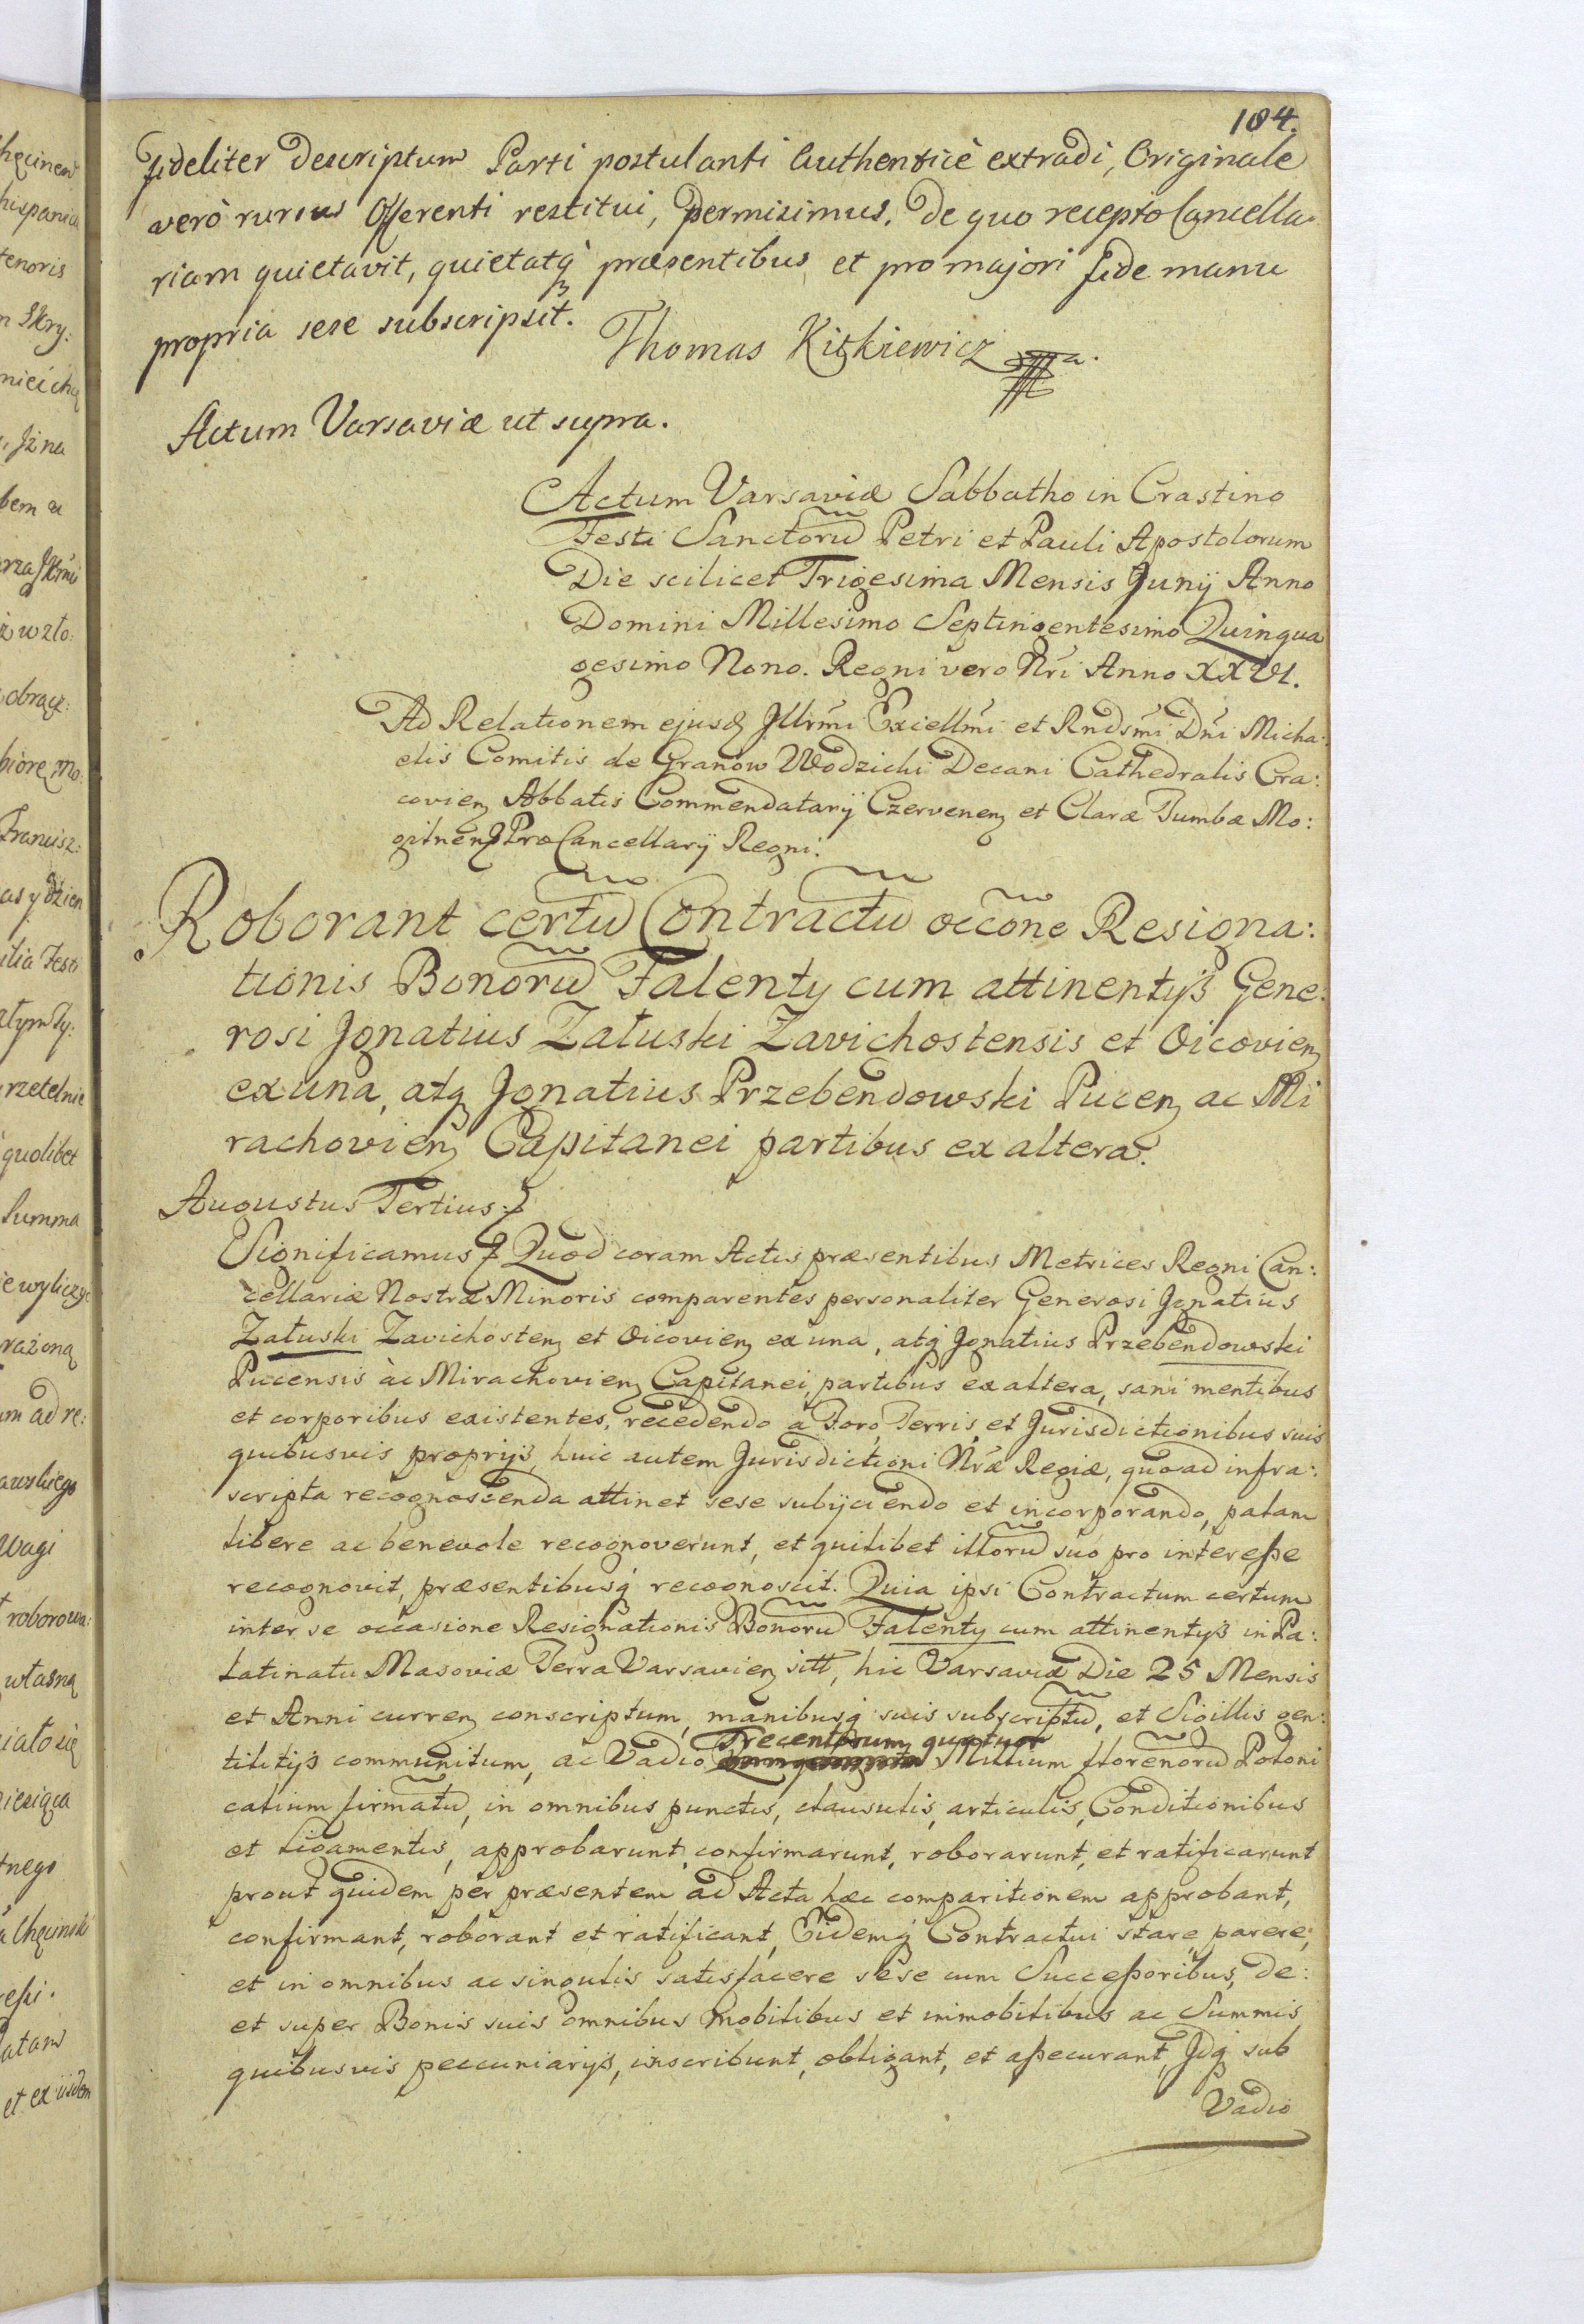 104.
fideliter descriptum Parti postulanti Authenticè extradi, Originale
verò rursus Offerenti restitui, permisimus. De quo recepto Cancella-
riam quietavit, quietatq̃ præsentibus et pro majori fide manu
propria sese subscripsit. Thomas Kitkiewicz
Actum Varsaviæ ut supra.
Actum Varsaviæ Sabbatho in Crastino
Festi Sanctorũ Petri et Pauli Apostolorum
Die scilicet Trigesima Mensis Junij Anno
Domini Millesimo Septingentesimo Quinqua
gesimo Nono. Regni vero Nri Anno XXVI.
Ad Relationem ejusq Jllrmi Excellmi et Rndsmi Dni Micha:
elis Comitis de Granow Wodzicki Decani Cathedralis Cra:
covien Abbatis Commendatarij Czervenen et Claræ Tumbæ Mo:
gilnen ProCancellarij Regni.
Roborant certũ Contractũ occõne Resigna:
tionis Bonorũ Falenty cum attinentijs Gene:
rosi Jgnatius Załuski Zavichostensis et Oicovien
ex una, atq Jgnatius Przebendowski Pucen ac Mi
rachovien Capitanei partibus ex altera.
Augustus Tertius
Significamus Quod coram Actis præsentibus Metrices Regni Can:
cellariæ Nostræ Minoris comparentes personaliter Generosi Jgnatius
Załuski Zavichosten et Oicovien ex una, atq Jgnatius Przebendowski
Pucensis àc Mirachovien Capitanei, partibus ex altera, sani mentibus
et corporibus existentes, recedendo à Foro, Terris, et Jurisdictionibus suis
quibusvis proprijs, huic autem Jurisdictioni Nræ Regiæ, quoad infra:
scripta recognoscenda attinet sese subijciendo et incorporando, palam
libere ac benevole recognoverunt, et quilibet illorũ suo pro interesse
recognovit, præsentibusq̃ recognoscit. Quia ipsi Contractum certum
inter se occasione Resignationis Bonorũ Falenty cum attinentijs in Pa:
latinatu Masoviæ Terra Varsavien sitt, hic Varsaviæ Die 25 Mensis
et Anni curren conscriptum, manibusq̃ suis subscriptũ, et Sigillis gen:
Trecentorum quatuor
tilitijs communitum, ac Vadio Millium florenorũ Poloni
calium firmatũ, in omnibus punctis, clausulis, articulis, Conditionibus
et ligamentis, approbarunt, confirmarunt, roborarunt, et ratificarunt
prout quidem per præsentem ad Acta hæc comparitionem approbant,
confirmant, roborant et ratificant, Eidemq̃ Contractui stare, parere,
et in omnibus ac singulis satisfacere sese cum Successoribus, de:
et super Bonis suis omnibus mobilibus et immobilibus ac Summis
quibusvis peccuniarijs, inscribunt, obligant, et assecurant, Jdq̃ sub
Vadio